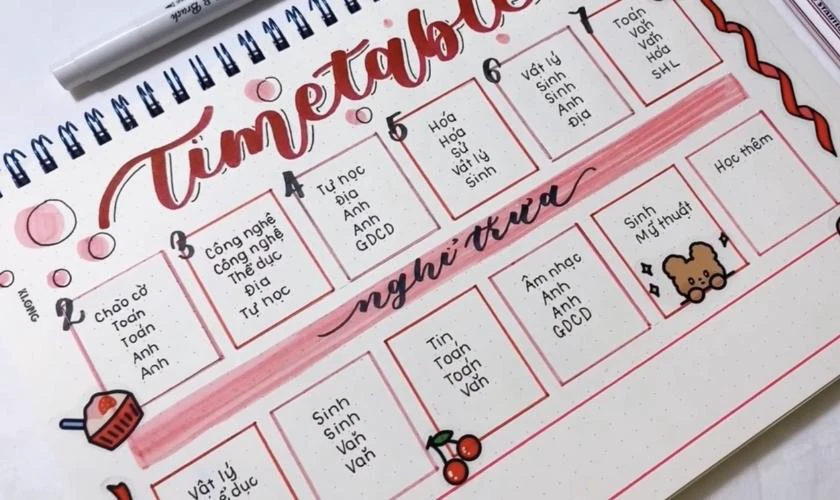 Brush
Timetable
KLONG
2
Chào cờ
Toán
Toán
Anh
Anh
3
Công nghệ
Công nghệ
Thể dục
Địa
Tự học
4
Tự học
Địa
Anh
Anh
GDCD
5
Hóa
Hóa
Sử
Vật lý
Sinh
6
Vật lý
Sinh
Sinh
Anh
Địa
7
Toán
Văn
Văn
Hóa
SHL
nghỉ trưa
Vật lý
dục
Sinh
Sinh
Văn
Văn
Tin
Toán
Toán
Văn
Âm nhạc
Anh
Anh
GDCD
Sinh
Mỹ thuật
Học thêm